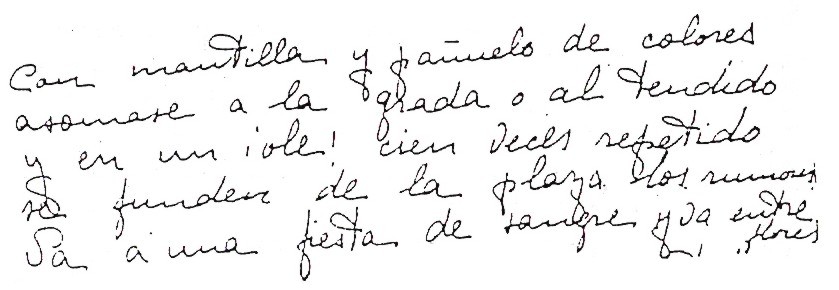 Con mantilla y pañuelo de colores
asomase a la grada o al tendido
y en un ¡ole! cien veces repetido
se funden de la plaza los rumores
Va a una fiesta de sangre y va entre
flores